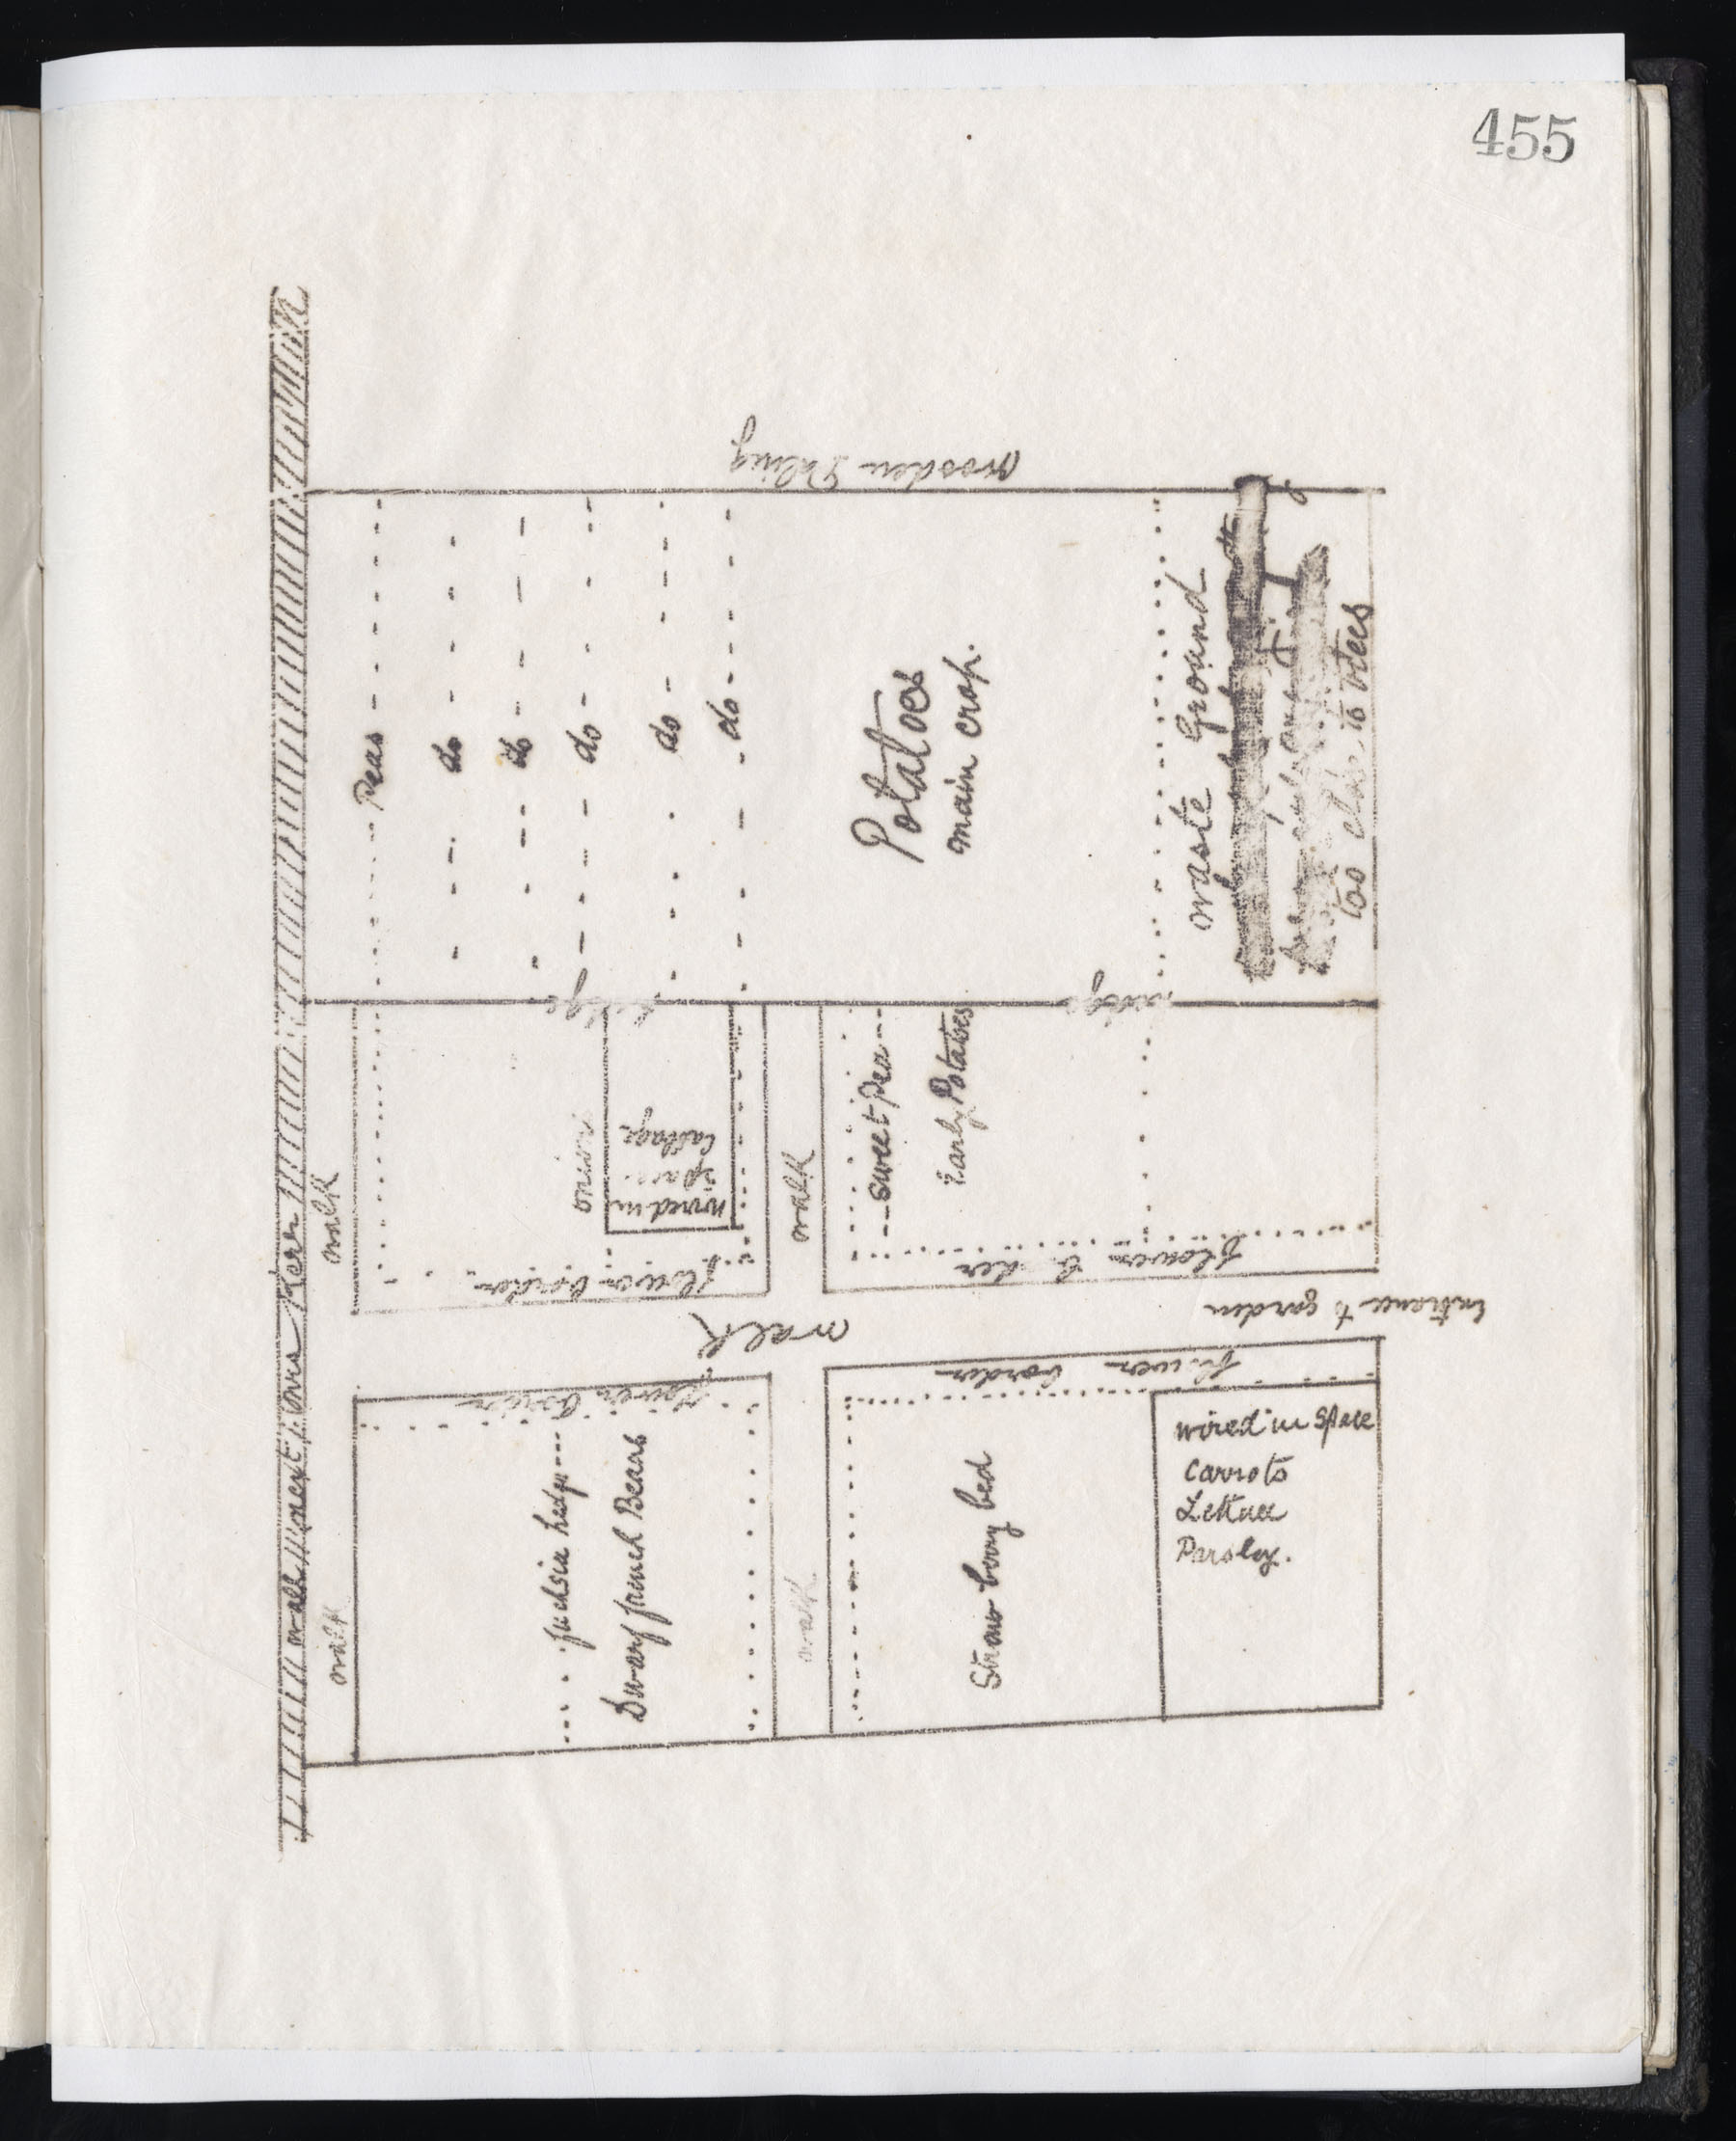 455
wooden Paling
Peas
do
do
do
do
do
Potatoes
main crop.
waste Ground
too close to trees
hedge
hedge
walk
onions
wired in
space
Cabbage
flower border
walk
sweet Pea
Early Potatoes
flower border
Entrance to garden
walk
walk
flower border
fuchsia hedge
Dwarf french Beans
walk
flower border
Straw berry bed
wired in space
Carrots
Lettuce
Parsley.